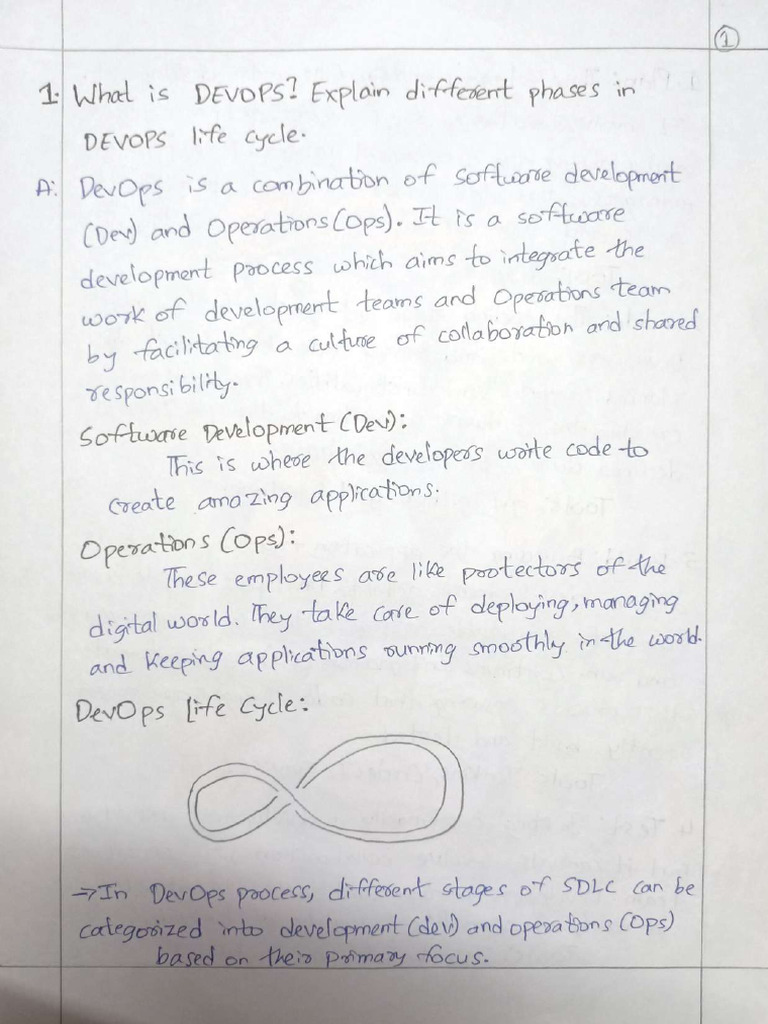 1
1. What is DEVOPS? Explain different phases in
DEVOPS life cycle.
A: DevOps is a combination of software development
(Dev) and Operations (Ops). It is a software
development process which aims to integrate the
work of development teams and Operations team
by facilitating a culture of collaboration and shared
responsibility.
Software Development (Dev):
This is where the developers write code to
create amazing applications.
Operations (Ops):
These employees are like protectors of the
digital world. They take care of deploying, managing
and keeping applications running smoothly in the world.
DevOps Life Cycle:
⇒ In DevOps process, different stages of SDLC can be
categorized into development (dev) and operations (Ops)
based on their primary focus.